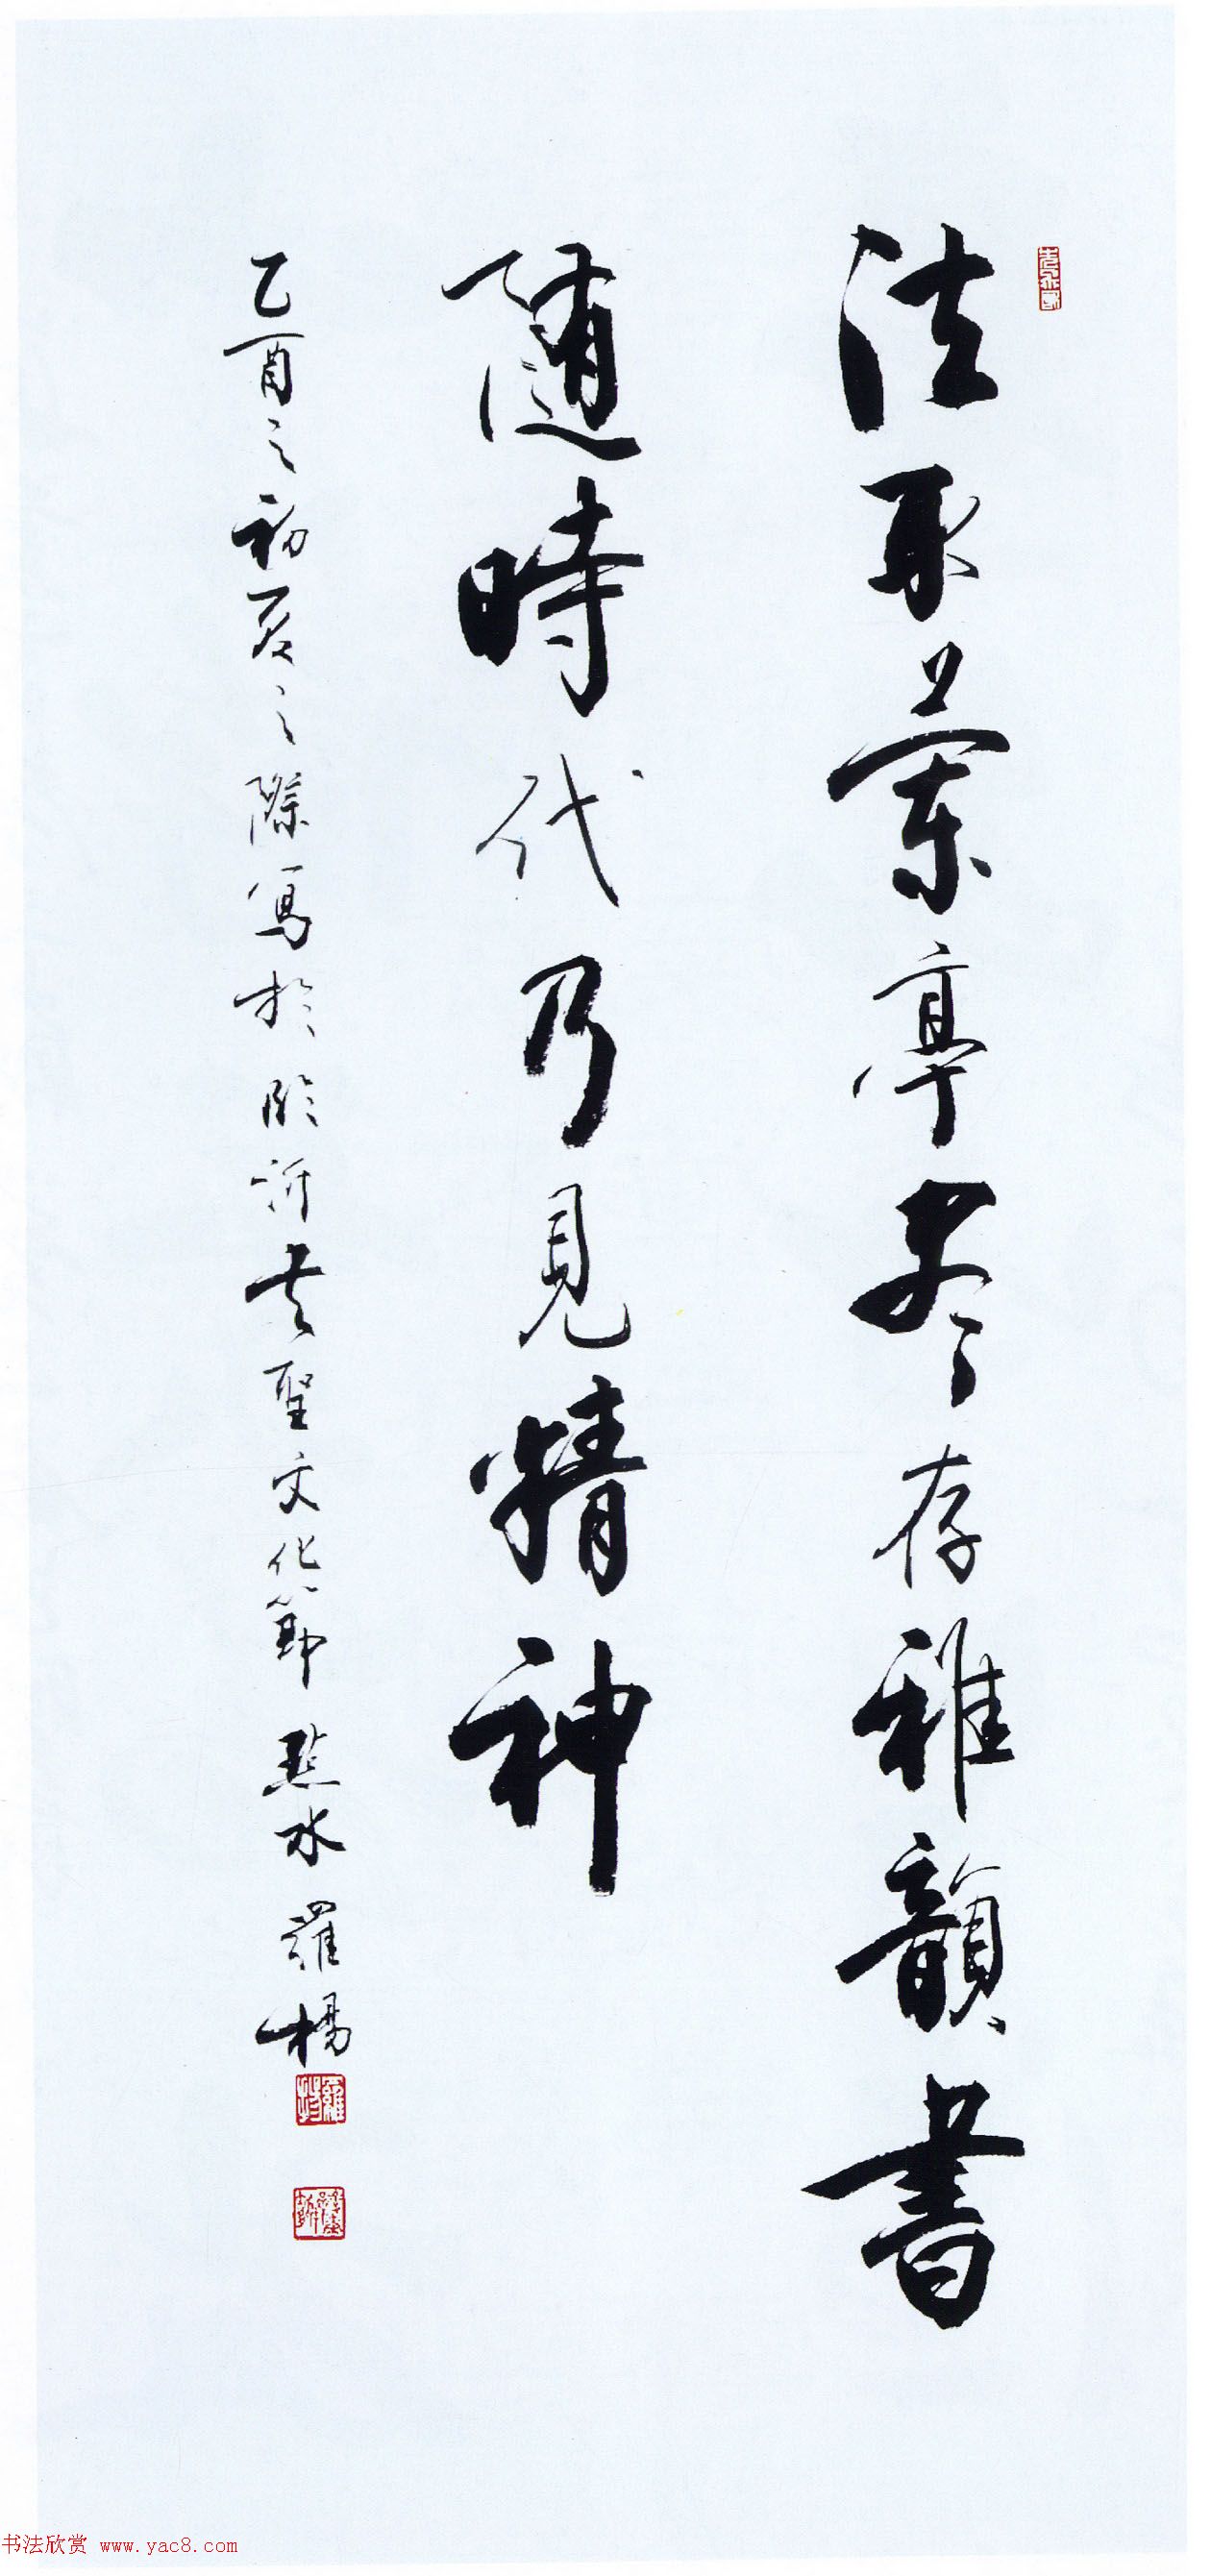 法取蘭亭尽存雅韻書
随時代乃見精神
乙酉之初夏之際寫於臨沂書聖文化節 點水 羅楊
書法欣赏 www.yac8.com